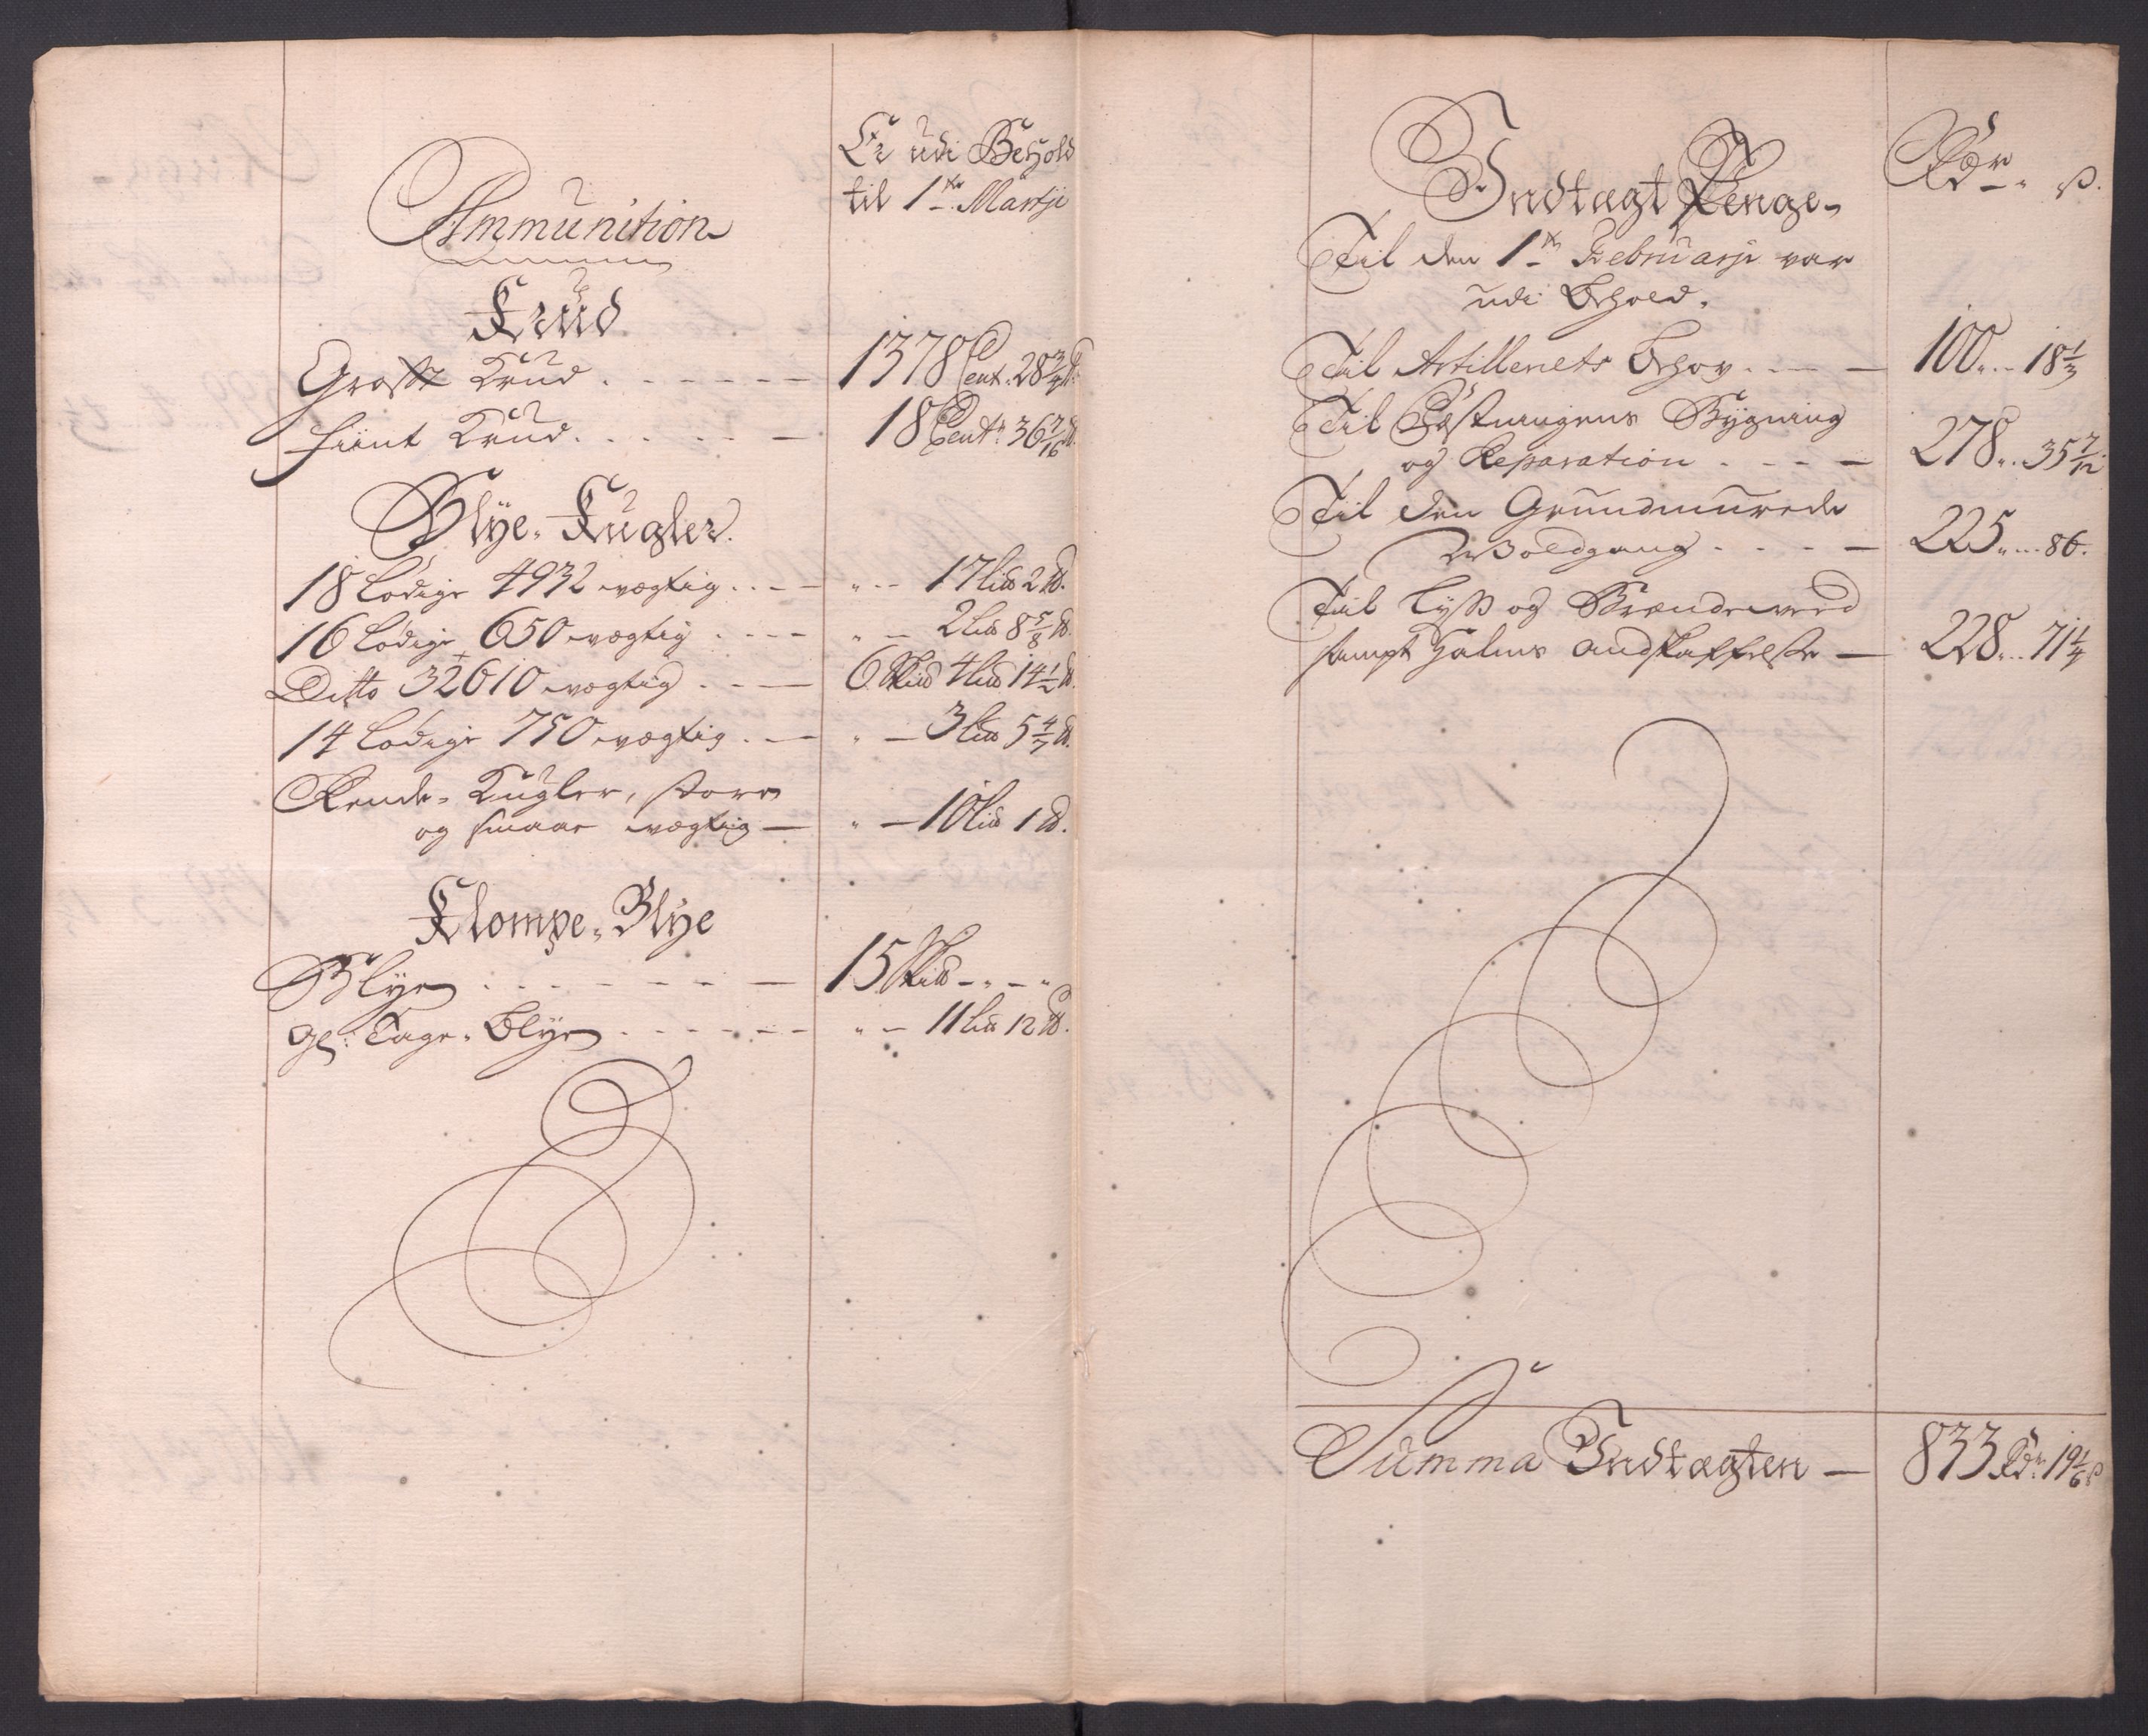 Er udi Behold
til 1te Martji
Ammunition
Krud
Groft Krud . . . . . . 1378 Cent. 28 3/4 ℔.
fiint Krud . . . . . 18 Cent. 36 7/16 ℔.
Blye-Kugler.
18 Lødige 4932 vægtig . . . " - 17 Lis℔ 2 ℔.
16 Lødige 650 vægtig . . . . " - 2 Lis℔ 8 5/8 ℔.
Ditto 32610 vægtig . . . 6 Skis℔ 4 Lis℔ 14 1/2 ℔.
14 Lødige 750 vægtig . . . " - 3 Lis℔ 5 4/7 ℔.
Rende-Kugler, store
og smaae vægtig — " - 10 Lis℔ 1 ℔.
Klompe-Blye
Blye . . . . . . . 15 Skis℔ - " - "
gl: Tage-Blye . . . . . . " - 11 Lis℔ 12 ℔.
Indtægt Penge Rdr. ß.
Til den 1te Februarji var
udi Behold.
Til Artilleriets Behov . . . 100 . . 18 1/3
Til Fæstningens Bygning
og Reparation . . . . 278 . . 35 7/12
Til den Grundmurede
Woldgang . . . . 225 . . . 86.
Til Lyß og Brændeveed
sampt Halms andskaffelße — 228 . . 71 1/4
Summa Indtægten — 833 Rdr. 19 1/6 ß